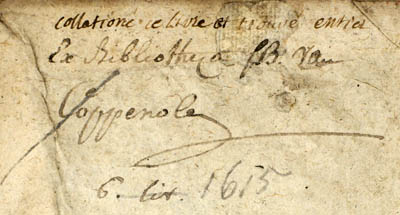 collationé ce livre et trouvé entier
Ex Bibliotheca J B. Van
Coppenole
6. lit. 1615